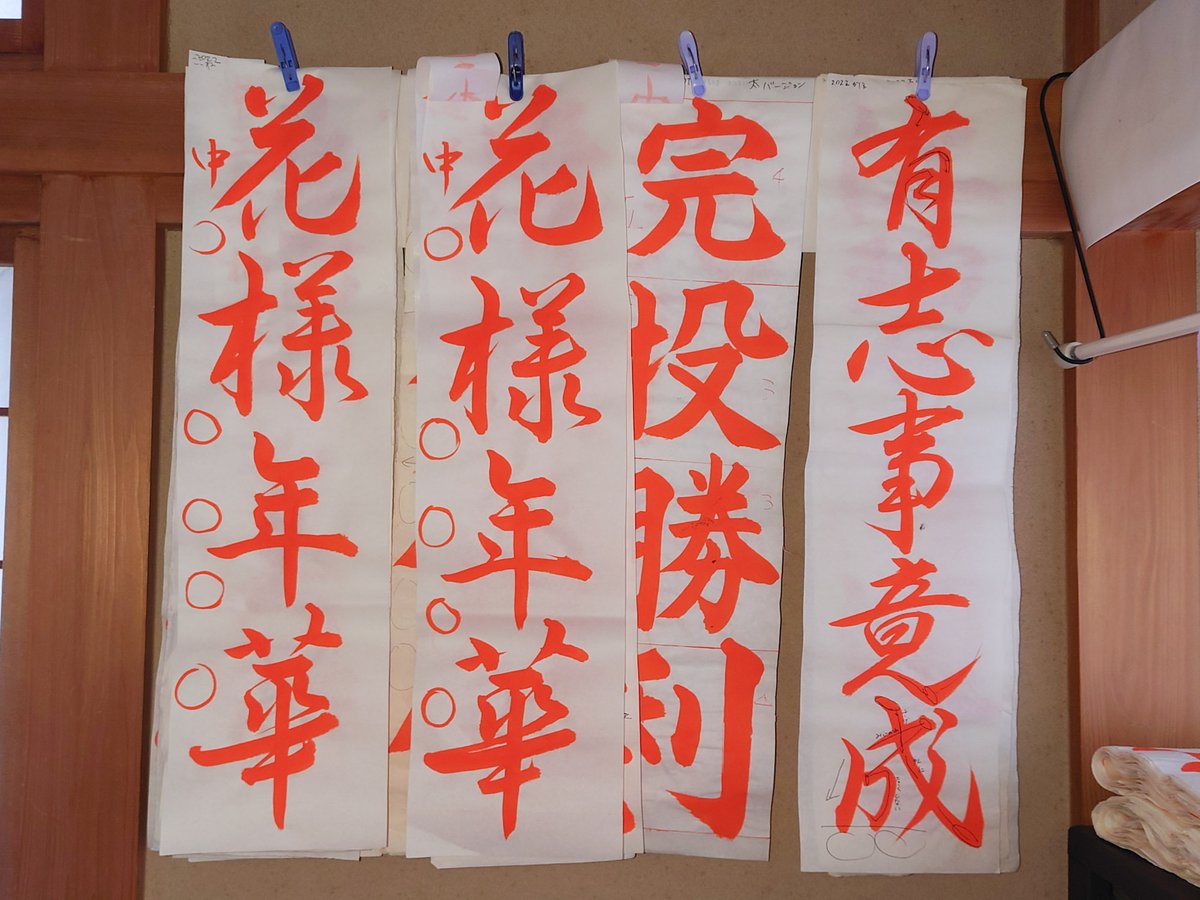 花様年華
中
花様年華
中
完投勝利
太バージョン
有志事意成